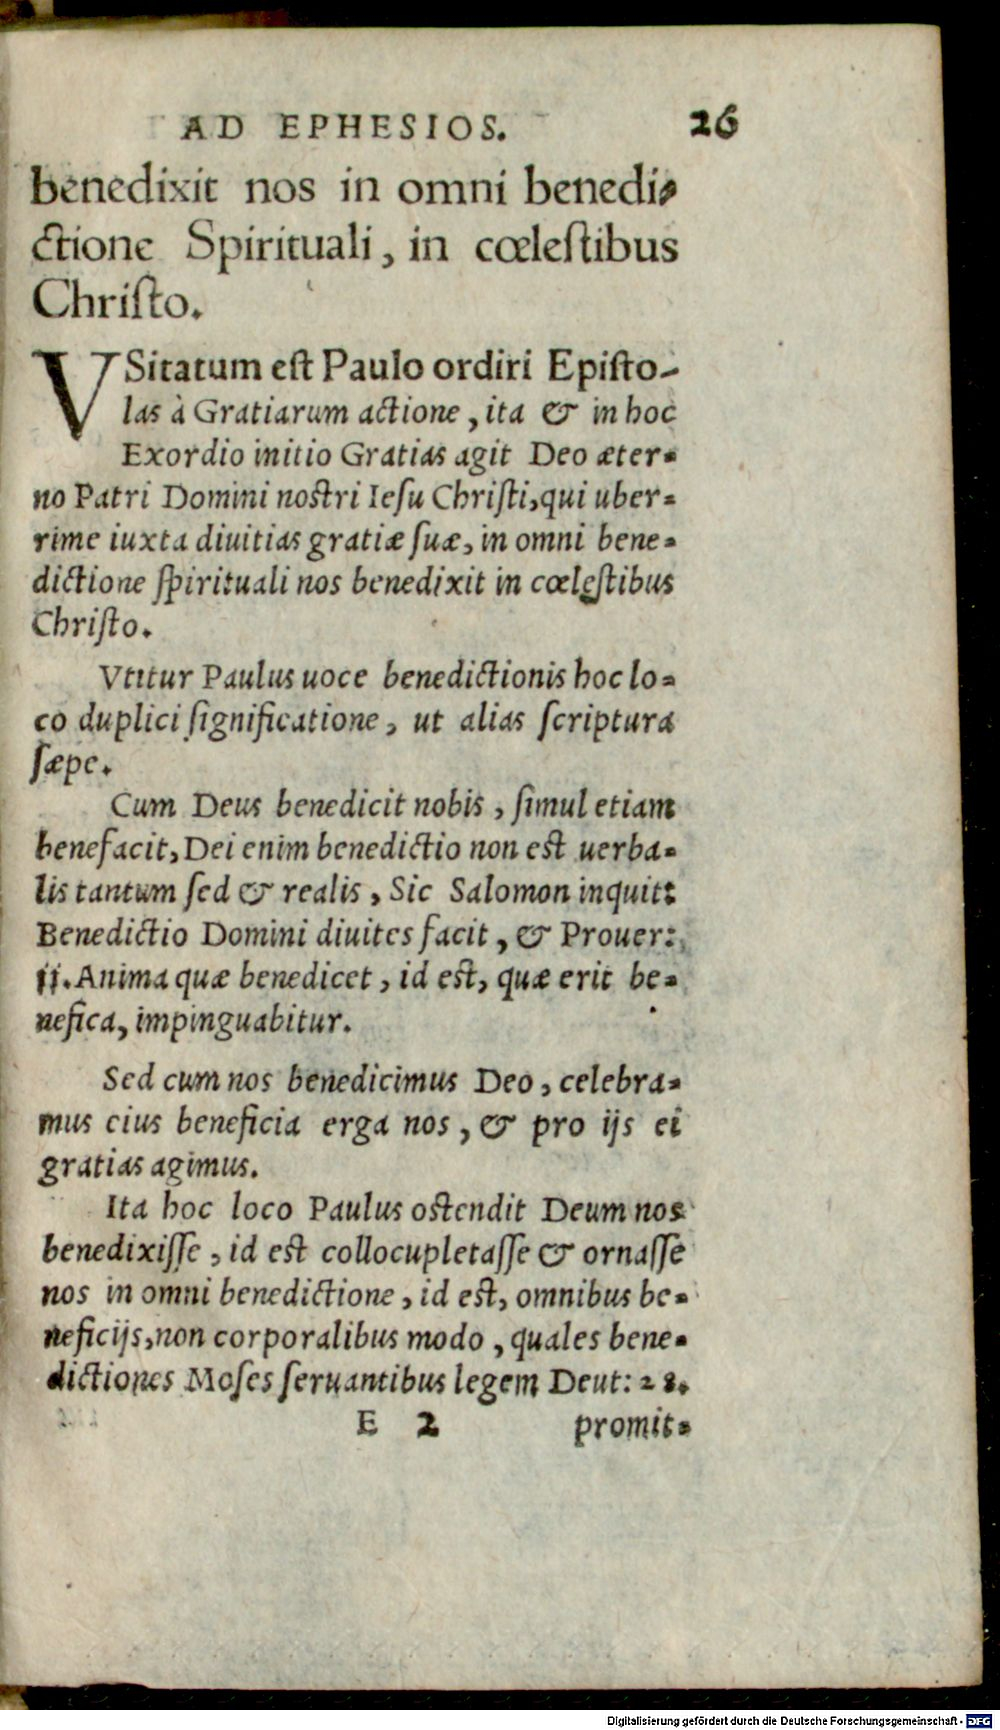 AD EPHESIOS. 26
benedixit nos in omni benedi-
ctione Spirituali, in cœleſtibus
Chriſto.
VSitatum eſt Paulo ordiri Epiſto-
las à Gratiarum actione, ita & in hoc
Exordio initio Gratias agit Deo æter-
no Patri Domini noſtri Ieſu Chriſti, qui uber-
rime iuxta diuitias gratiæ ſuæ, in omni bene-
dictione ſpirituali nos benedixit in cœleſtibus
Chriſto.
Vtitur Paulus uoce benedictionis hoc lo-
co duplici ſignificatione, ut alias ſcriptura
ſæpe.
Cum Deus benedicit nobis, ſimul etiam
benefacit, Dei enim benedictio non eſt uerba-
lis tantum ſed & realis, Sic Salomon inquit:
Benedictio Domini diuites facit, & Prouer:
11. Anima quæ benedicet, id eſt, quæ erit be-
nefica, impinguabitur.
Sed cum nos benedicimus Deo, celebra-
mus eius beneficia erga nos, & pro ijs ei
gratias agimus.
Ita hoc loco Paulus oſtendit Deum nos
benedixiſſe, id eſt collocupletaſſe & ornaſſe
nos in omni benedictione, id eſt, omnibus be-
neficijs, non corporalibus modo, quales bene-
dictiones Moſes ſeruantibus legem Deut: 28.
E 2 promit-
Digitalisierung gefördert durch die Deutsche Forschungsgemeinschaft - DFG